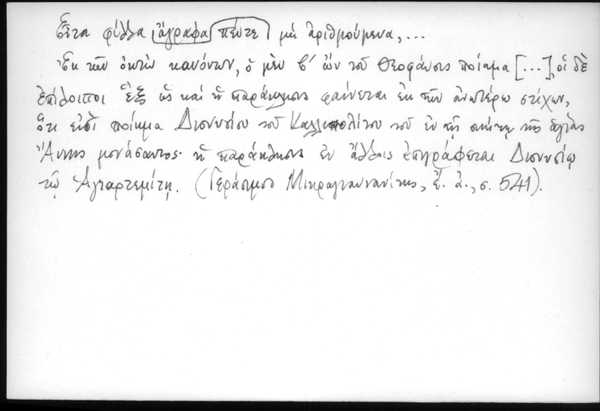 Εἶτα φύλλα ἄγραφα πέντε μὴ ἀριθμούμενα,...
Ἐκ τῶν ὀκτὼ κανόνων, ὁ μὲν β´ ὢν τοῦ Θεοφάνους ποίημα [...], οἱ δὲ
ἐπίλοιποι ἓξ ὡς καὶ ἡ παράκλησις φαίνεται ἐκ τῶν ἀνωτέρω στίχων,
ὅτι εἰσὶ ποίημα Διονυσίου τοῦ Καλλιπολίτου τοῦ ἐν τῇ σκήτῃ τῆς ἁγίας
Ἄννης μονάσαντος· ἡ παράκλησις ἐν ἄλλοις ἐπιγράφεται Διονυσίῳ
τῷ Ἁγιαρτεμίτῃ. (Γεράσιμος Μικραγιαννανίτης, ἔ. ἀ., σ. 541).